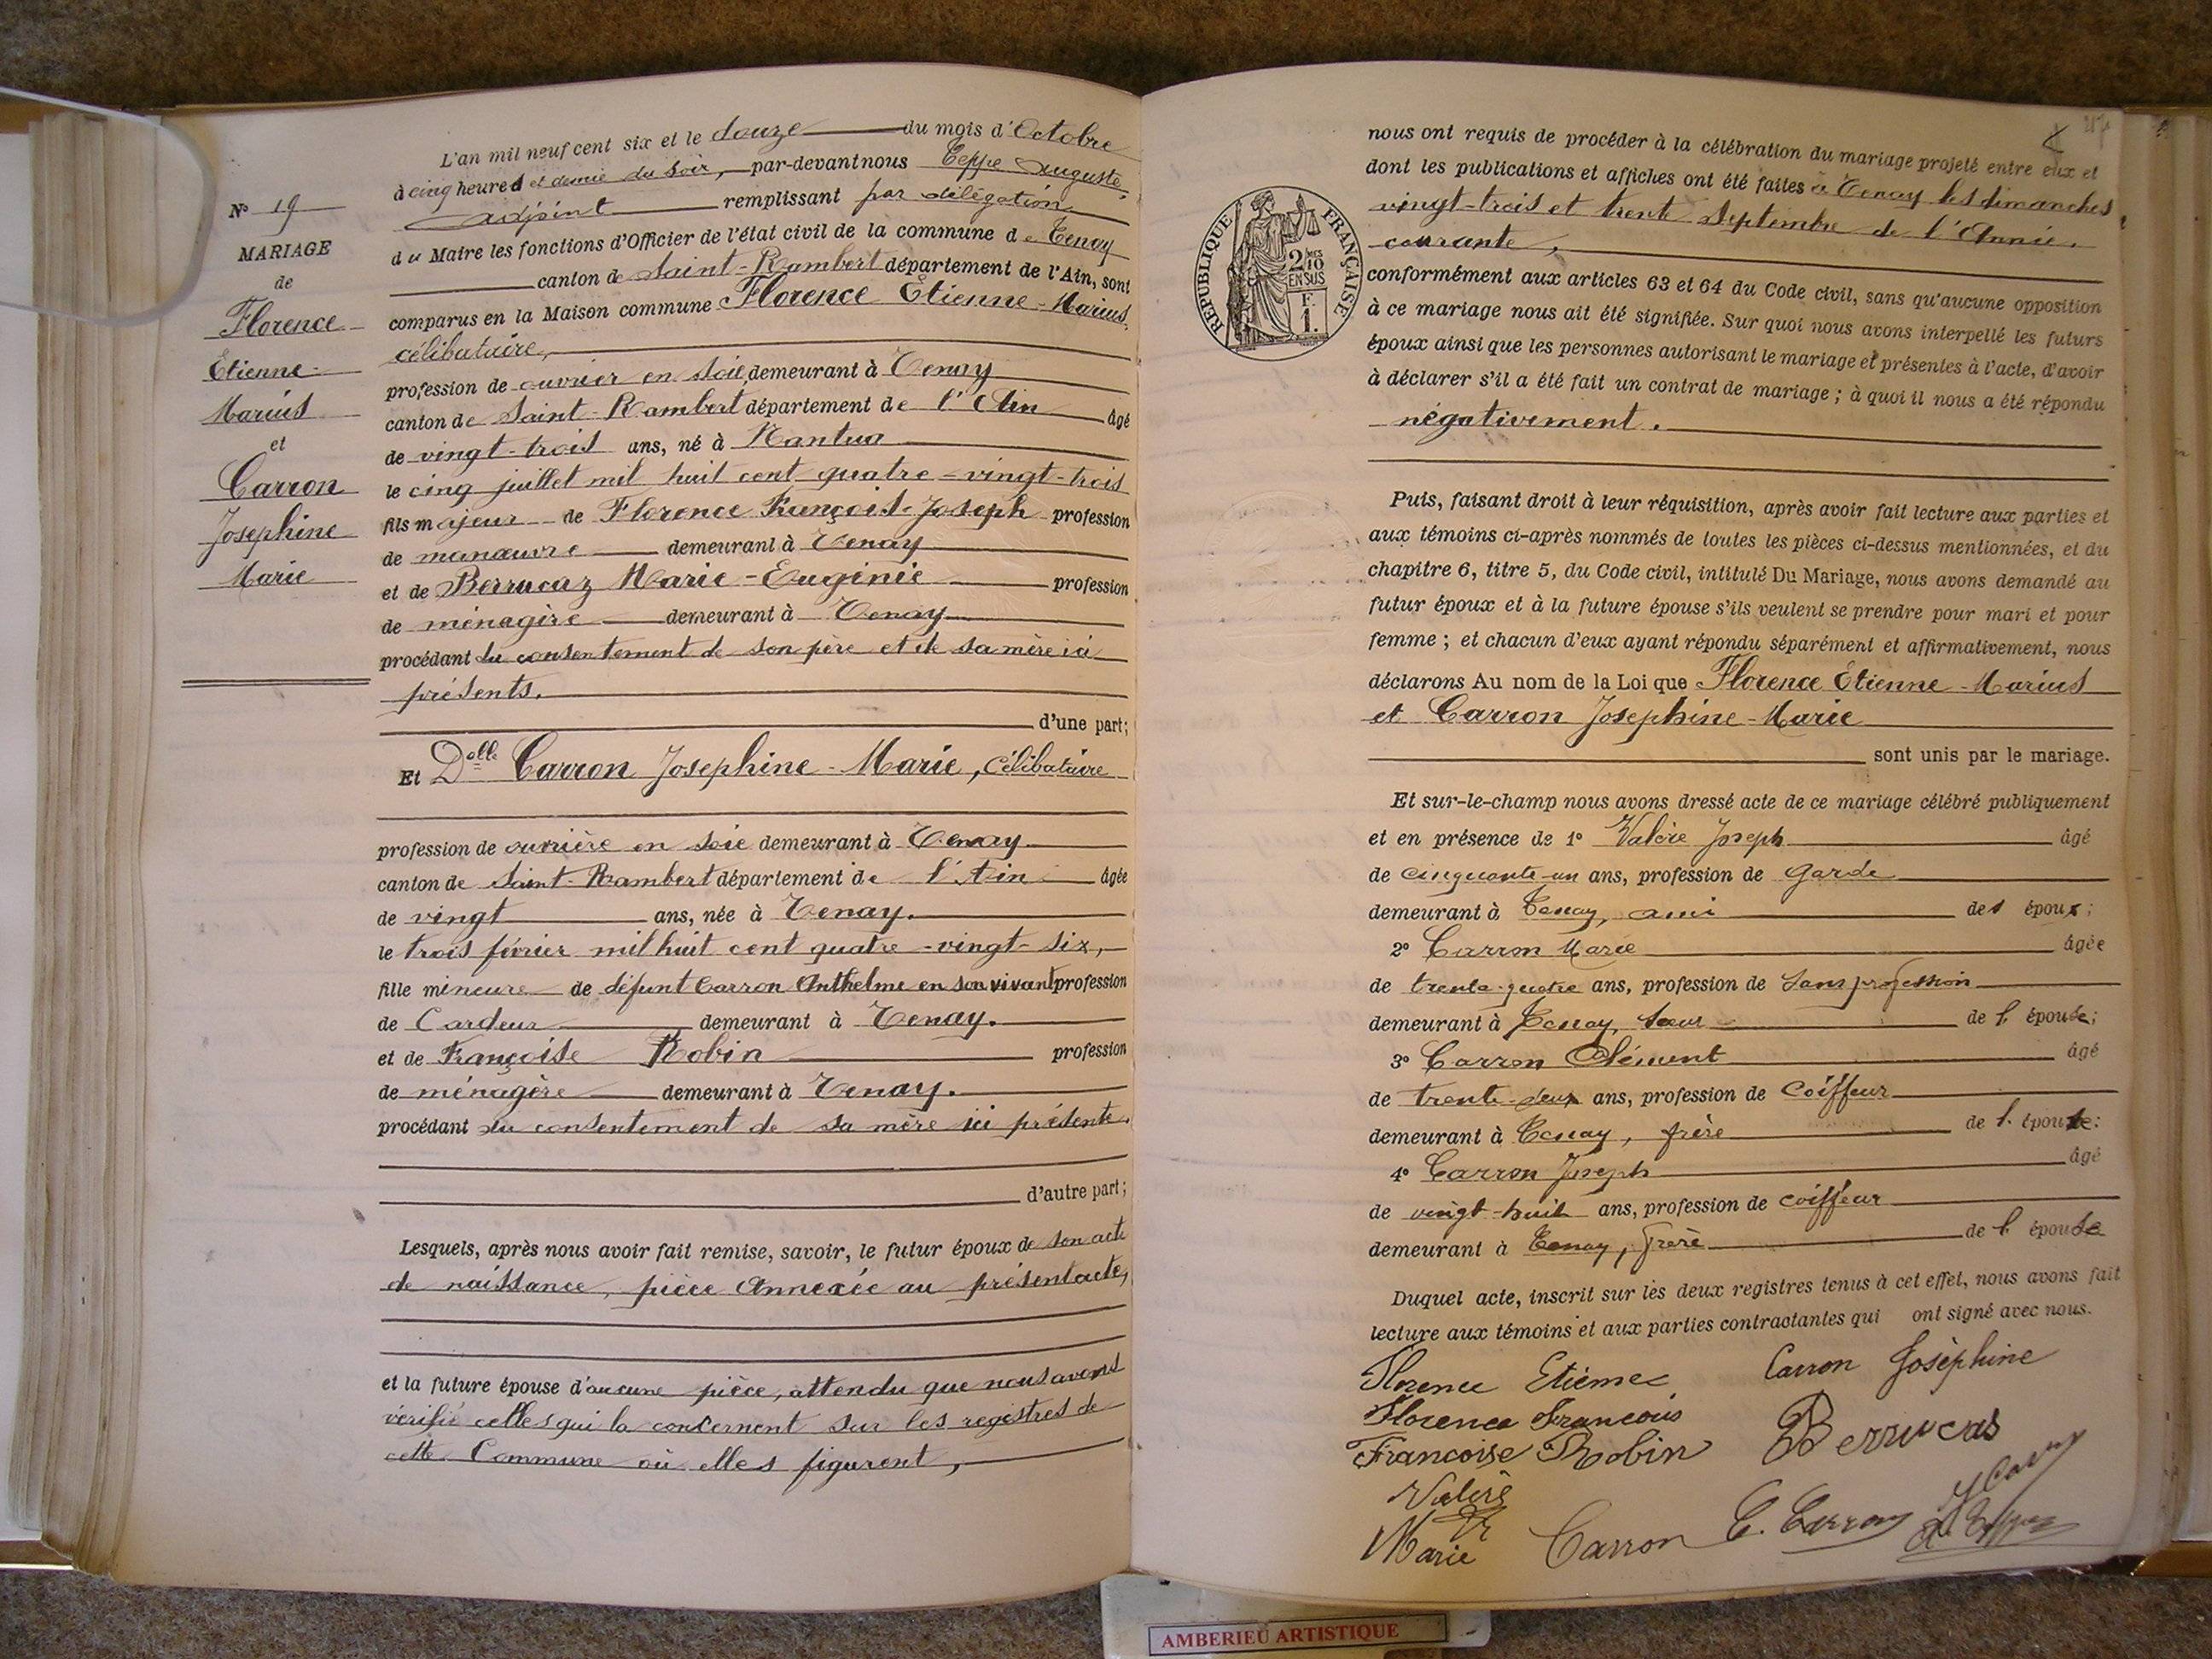 L'an mil neuf cent six et le douze du mois d'Octobre
à cinq heures et demie du soir, par-devant nous Eeppe Auguste,
adjoint remplissant par délégation
du Maire les fonctions d'Officier de l'état civil de la commune de Tenay
canton de Saint-Rambert département de l'Ain, sont
comparus en la Maison commune Florence Etienne-Marius,
célibataire,
profession de ouvrier en soie, demeurant à Tenay
canton de Saint-Rambert département de l'Ain âgé
de vingt-trois ans, né à Nantua
le cinq juillet mil huit cent quatre-vingt-trois
fils majeur de Florence François-Joseph profession
de manœuvre demeurant à Tenay
et de Berrucaz Marie-Eugénie profession
de ménagère demeurant à Tenay
procédant du consentement de son père et de sa mère ici
présents.
d'une part;
N° 19
MARIAGE
de
Florence
Etienne-
Marius
et
Carron
Josephine
Marie
Et Delle Carron Josephine-Marie, célibataire
profession de ouvrière en soie demeurant à Tenay
canton de Saint-Rambert département de l'Ain âgée
de vingt ans, née à Tenay.
le trois février mil huit cent quatre-vingt-six,
fille mineure de défunt Carron Anthelme en son vivant profession
de Cardeur demeurant à Tenay.
et de Françoise Robin profession
de ménagère demeurant à Tenay.
procédant du consentement de sa mère ici présente.
d'autre part;
Lesquels, après nous avoir fait remise, savoir, le futur époux de son acte
de naissance, pièce Annexée au présent acte,
et la future épouse d'aucune pièce, attendu que nous avons
vérifié celles qui la concernent sur les registres de
cette Commune où elles figurent,
nous ont requis de procéder à la célébration du mariage projeté entre eux et
dont les publications et affiches ont été faites à Tenay les dimanches
vingt-trois et trente Septembre de l'Année
courante,
RÉPUBLIQUE FRANÇAISE
2/10
EN SUS
F.
1.
conformément aux articles 63 et 64 du Code civil, sans qu'aucune opposition
à ce mariage nous ait été signifiée. Sur quoi nous avons interpellé les futurs
époux ainsi que les personnes autorisant le mariage et présentes à l'acte, d'avoir
à déclarer s'il a été fait un contrat de mariage; à quoi il nous a été répondu
négativement.
Puis, faisant droit à leur réquisition, après avoir fait lecture aux parties et
aux témoins ci-après nommés de toutes les pièces ci-dessus mentionnées, et du
chapitre 6, titre 5, du Code civil, intitulé Du Mariage, nous avons demandé au
futur époux et à la future épouse s'ils veulent se prendre pour mari et pour
femme; et chacun d'eux ayant répondu séparément et affirmativement, nous
déclarons Au nom de la Loi que Florence Etienne-Marius
et Carron Josephine-Marie
sont unis par le mariage.
Et sur-le-champ nous avons dressé acte de ce mariage célébré publiquement
et en présence de 1° Valère Joseph âgé
de cinquante-un ans, profession de garde
demeurant à Tenay, ami des époux;
2° Carron Marie âgée
de trente-quatre ans, profession de Sans profession
demeurant à Tenay, sœur de l'épouse;
3° Carron Clément âgé
de trente-deux ans, profession de Coiffeur
demeurant à Tenay, frère de l'épouse:
4° Carron Joseph âgé
de vingt-huit ans, profession de coiffeur
demeurant à Tenay, frère de l'épouse
Duquel acte, inscrit sur les deux registres tenus à cet effet, nous avons fait
lecture aux témoins et aux parties contractantes qui ont signé avec nous.
Florence Etienne Carron Joséphine
Florence François
Françoise Robin Berrucas
Valère
Marie Carron C. Carron
AMBERIEU ARTISTIQUE